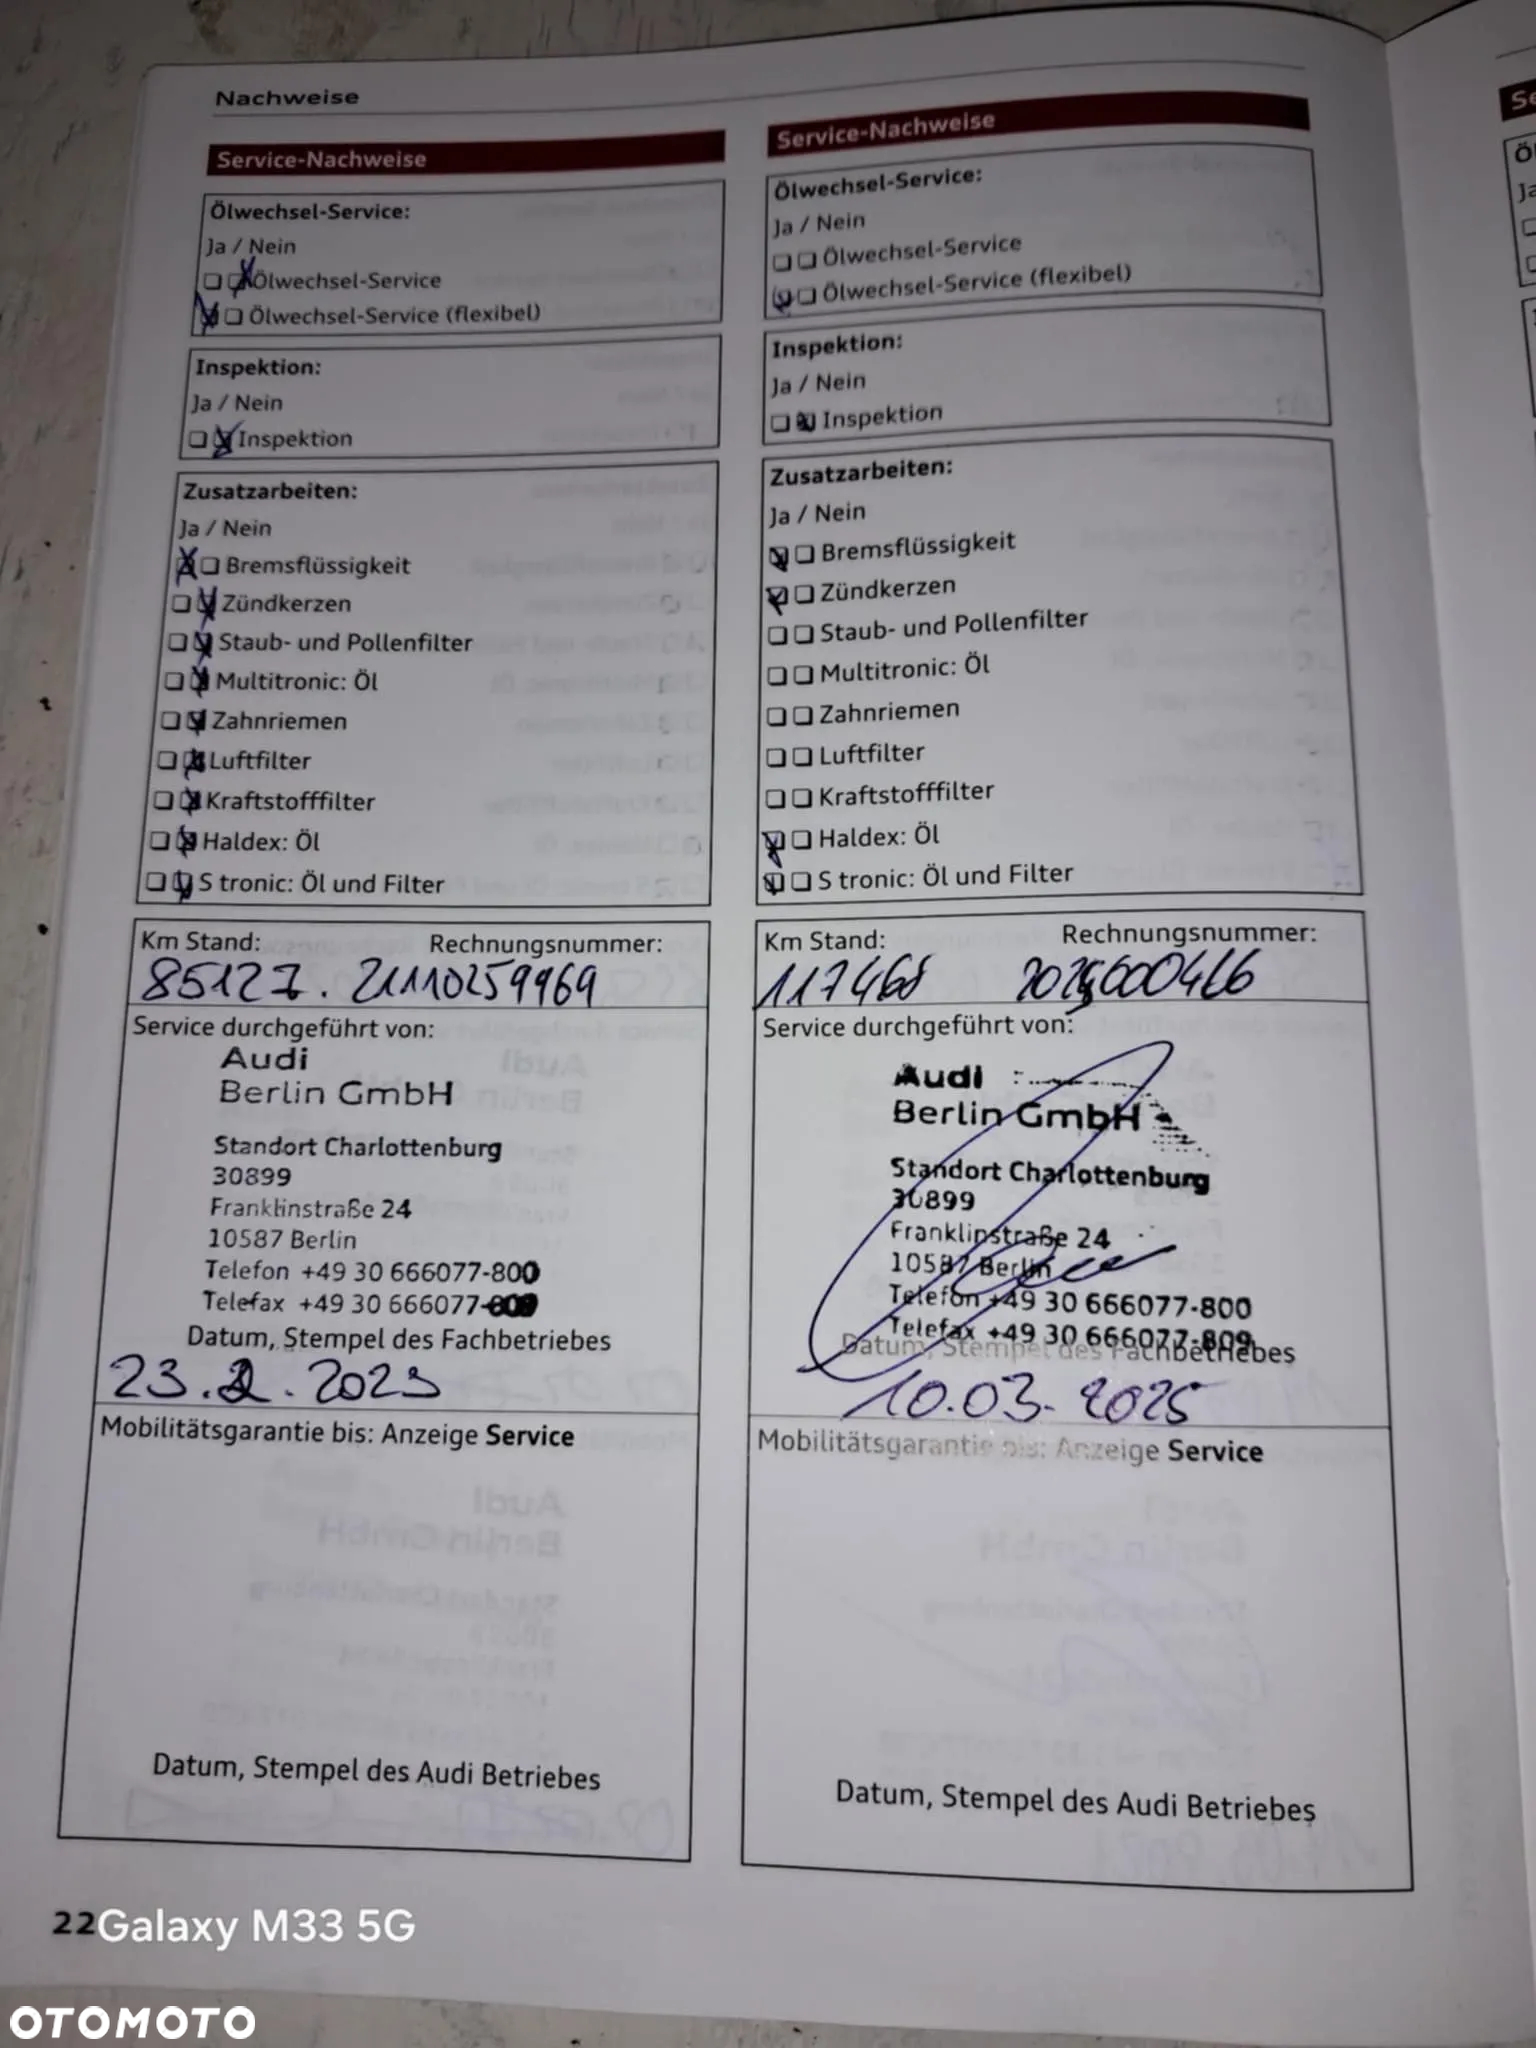 Nachweise
Service-Nachweise
Ölwechsel-Service:
Ja / Nein
Ölwechsel-Service
Ölwechsel-Service (flexibel)
Inspektion:
Ja / Nein
Inspektion
Zusatzarbeiten:
Ja / Nein
Bremsflüssigkeit
Zündkerzen
Staub- und Pollenfilter
Multitronic: Öl
Zahnriemen
Luftfilter
Kraftstofffilter
Haldex: Öl
S tronic: Öl und Filter
Km Stand: Rechnungsnummer:
85127. 21110259969
Service durchgeführt von:
Audi
Berlin GmbH
Standort Charlottenburg
30899
Franklinstraße 24
10587 Berlin
Telefon +49 30 666077-800
Telefax +49 30 666077-809
Datum, Stempel des Fachbetriebes
23.2.2023
Mobilitätsgarantie bis: Anzeige Service
Datum, Stempel des Audi Betriebes
Service-Nachweise
Ölwechsel-Service:
Ja / Nein
Ölwechsel-Service
Ölwechsel-Service (flexibel)
Inspektion:
Ja / Nein
Inspektion
Zusatzarbeiten:
Ja / Nein
Bremsflüssigkeit
Zündkerzen
Staub- und Pollenfilter
Multitronic: Öl
Zahnriemen
Luftfilter
Kraftstofffilter
Haldex: Öl
S tronic: Öl und Filter
Km Stand: Rechnungsnummer:
117468
Service durchgeführt von:
Audi
Berlin GmbH
Standort Charlottenburg
30899
Franklinstraße 24
10587 Berlin
Telefon +49 30 666077-800
Telefax +49 30 666077-809
Datum, Stempel des Fachbetriebes
10.03.2025
Mobilitätsgarantie bis: Anzeige Service
Datum, Stempel des Audi Betriebes
22
Galaxy M33 5G
OTOMOTO